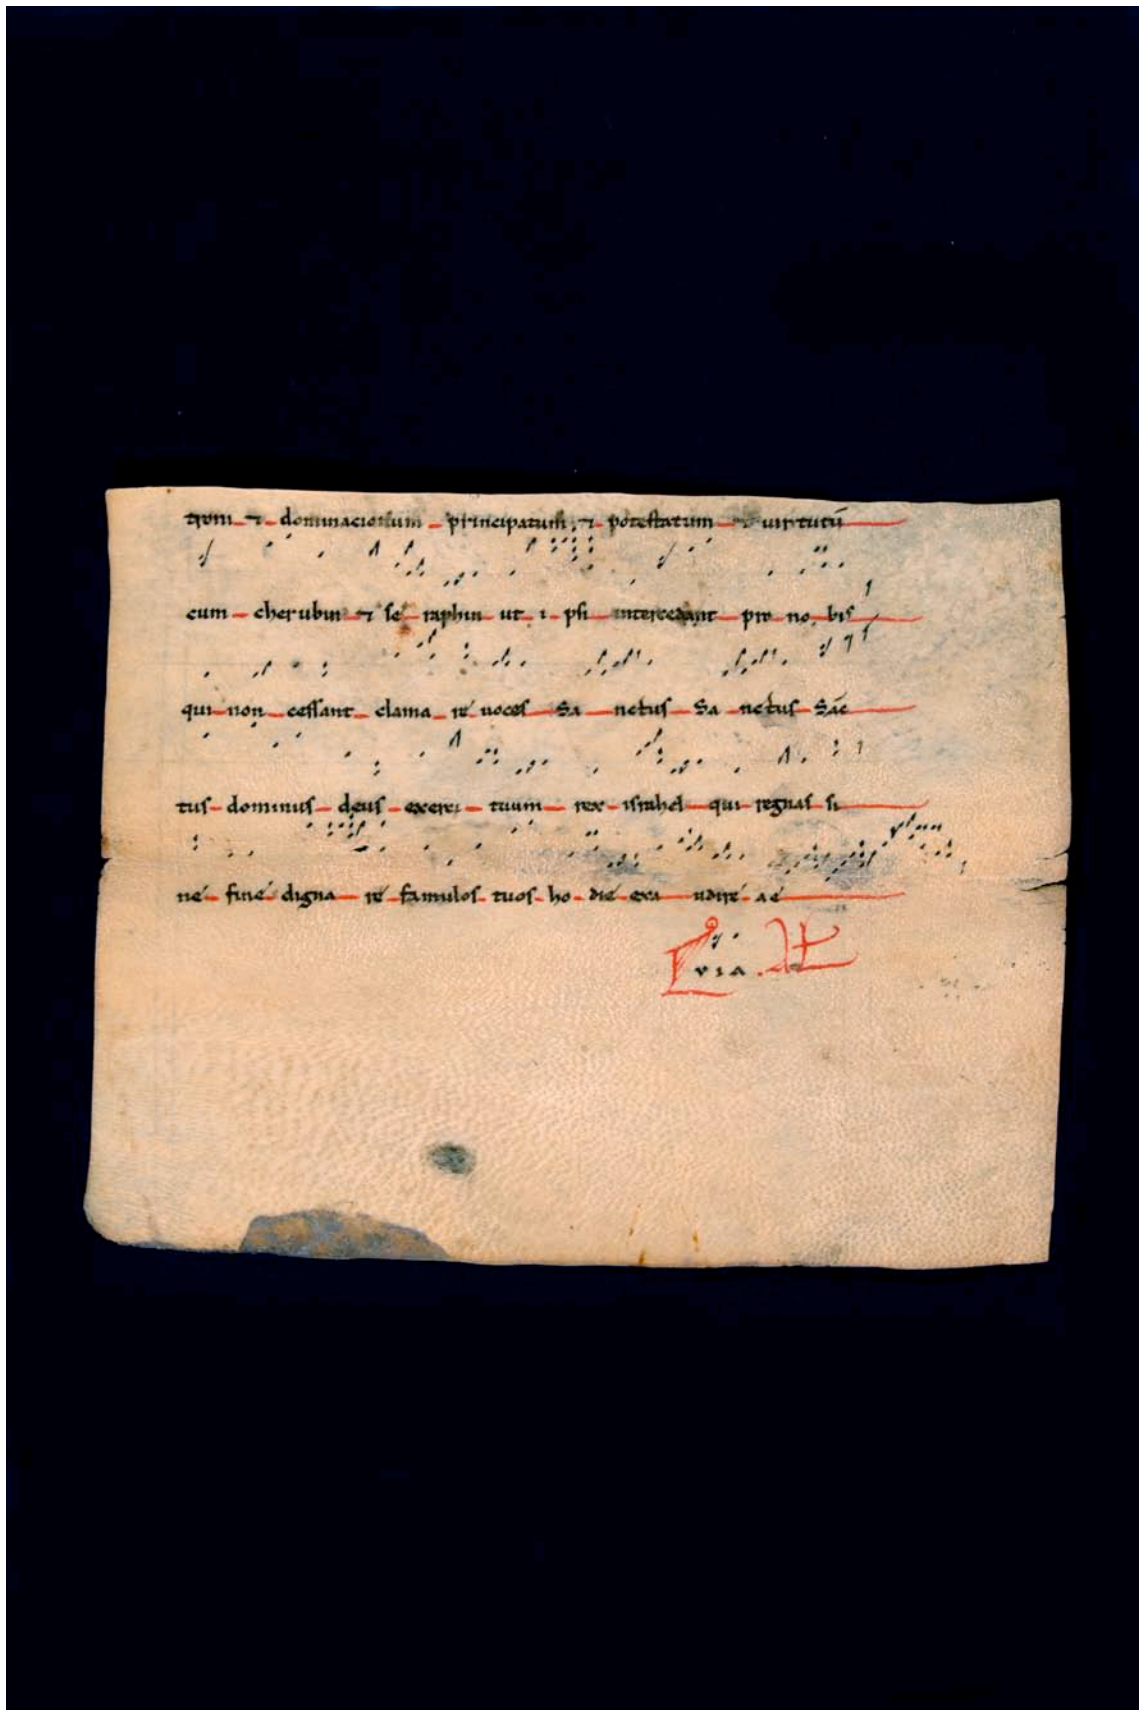 trom ⁊ dominacionum principatum ⁊ potestatum ⁊ uirtutū
cum cherubin ⁊ se raphin ut i psi intercedant pro no bis
qui non cessant clama re uoces Sa nctus Sa nctus Sāc
tus dominus deus exerci tuum rex israhel qui regnas si
ne fine digna re famulos tuos ho die exa udire ae
via